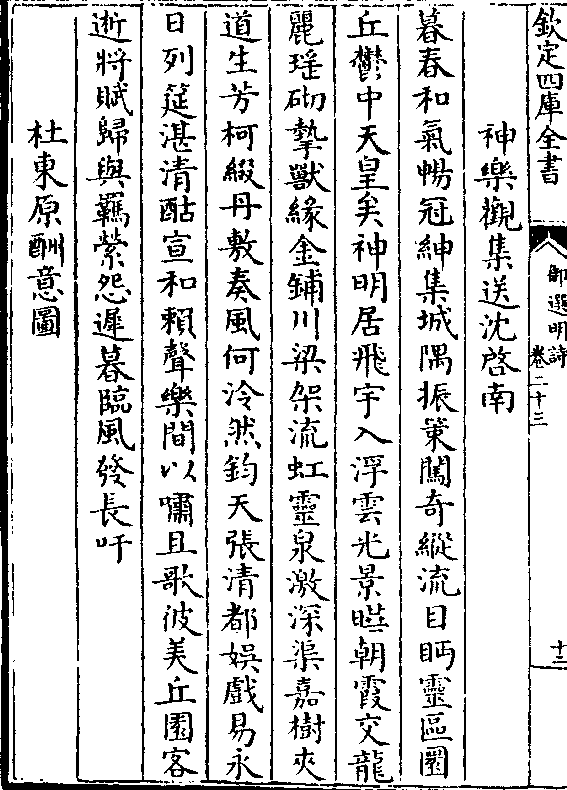 欽定四庫全書
御選明詩
卷二十三
十二
神樂觀集送沈啓南
暮春和氣暢冠紳集城隅振策闖奇縱流目眄靈區圜
丘鬱中天皇矣神明居飛宇入浮雲光景曃朝霞交龍
麗瑶砌摯獸緣金鋪川梁架流虹靈泉激深渠嘉樹夾
道生芳柯綴丹敷奏風何泠然鈞天張清都娱戲易永
日列筵湛清酤宣和賴聲樂間以嘯且歌彼美丘園客
逝將賦歸與羈縈怨遲暮臨風發長吁
杜東原酬意圖